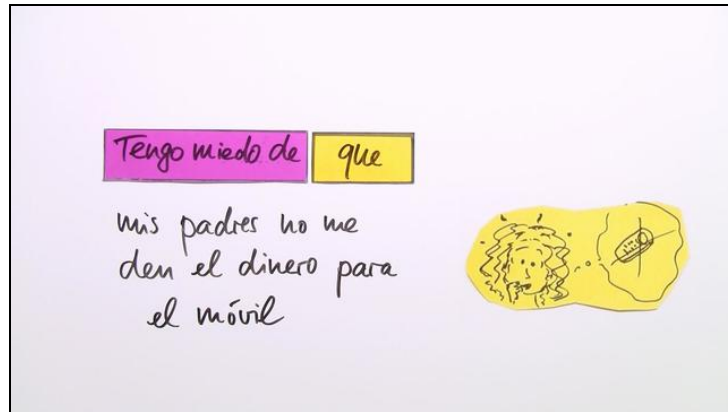 Tengo miedo de que
mis padres no me
den el dinero para
el móvil